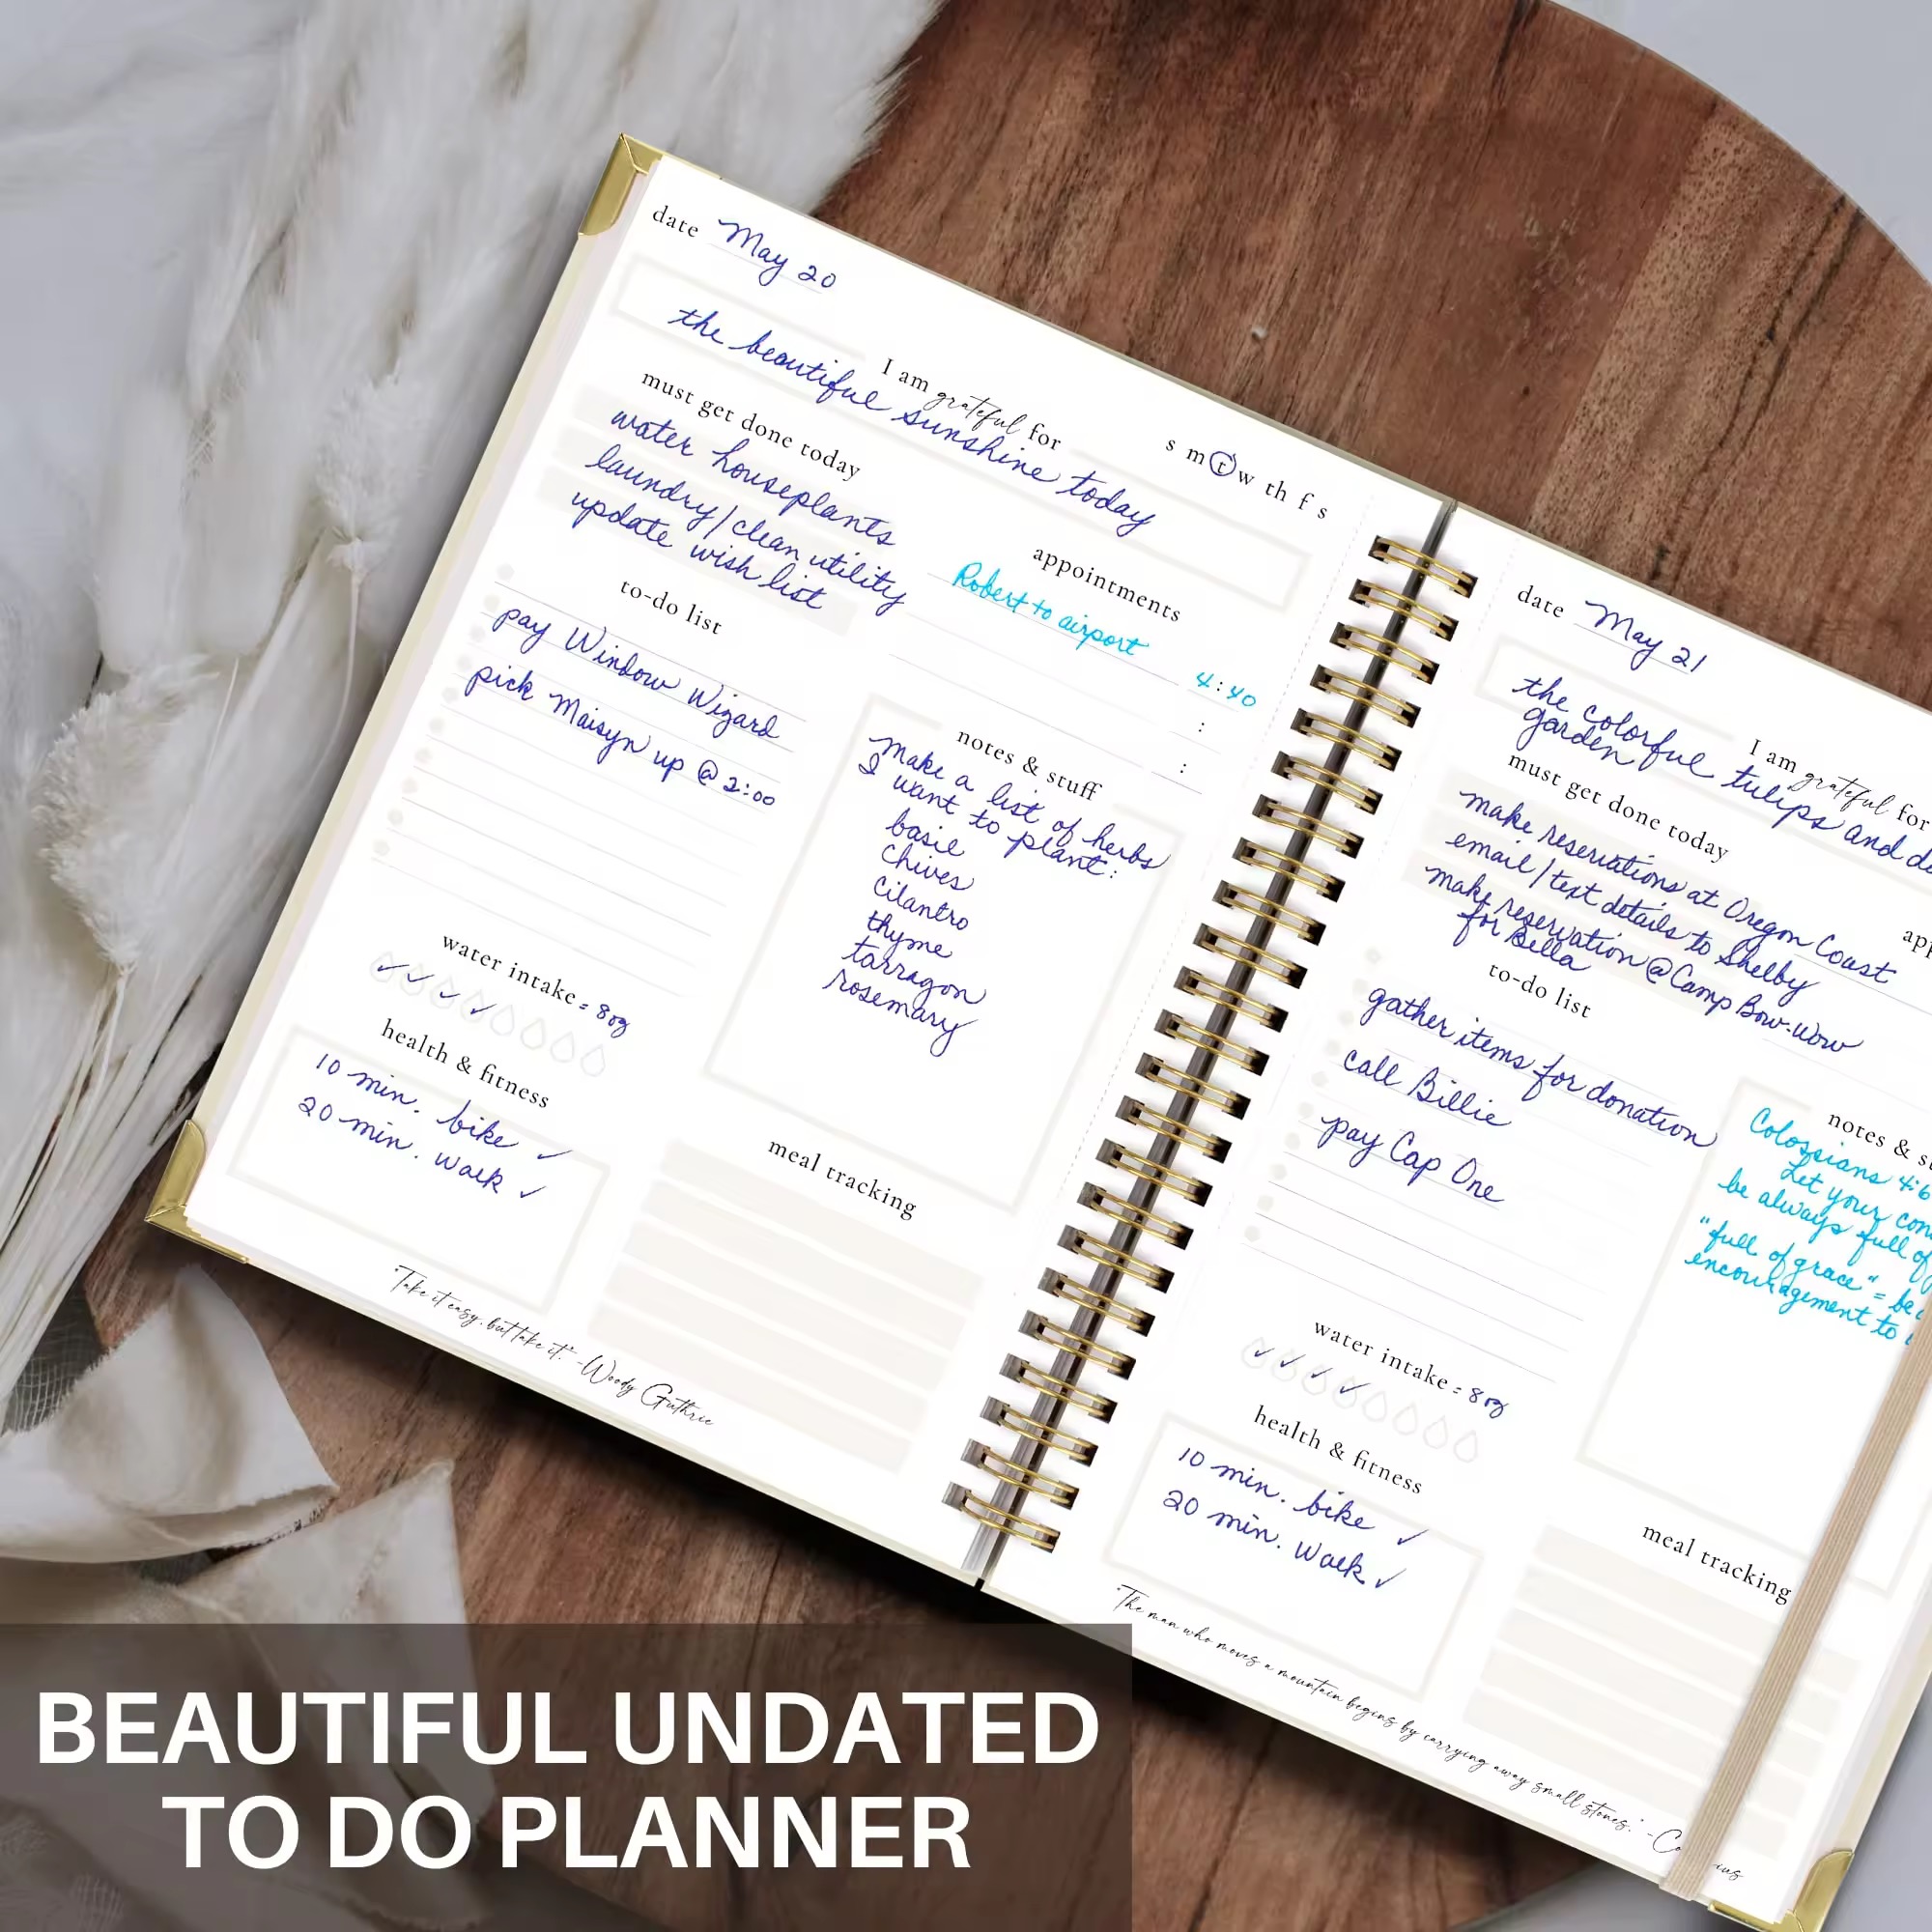 date May 20
s m t w th f s
I am grateful for
the beautiful sunshine today
must get done today
water houseplants
laundry/clean utility
update wish list
appointments
Robert to airport 4:40
:
:
to-do list
pay Window Wizard
pick Maisyn up @ 2:00
notes & stuff
Make a list of herbs
I want to plant:
basil
chives
cilantro
thyme
tarragon
rosemary
water intake = 8oz
health & fitness
10 min. bike ✓
20 min. walk ✓
meal tracking
"Take it easy, but take it." -Woody Guthrie
date May 21
I am grateful for
the colorful tulips and
garden
must get done today
make reservations at Oregon Coast
email/text details to Shelby
make reservation @ Camp Bow-Wow
for Bella
to-do list
gather items for donation
call Billie
pay Cap One
notes &
Colossians 4:6
Let your
be always full of
"full of grace" =
encouragement to
water intake = 8oz
health & fitness
10 min. bike ✓
20 min. walk ✓
meal tracking
"The man who moves a mountain begins by carrying away small stones."
BEAUTIFUL UNDATED
TO DO PLANNER